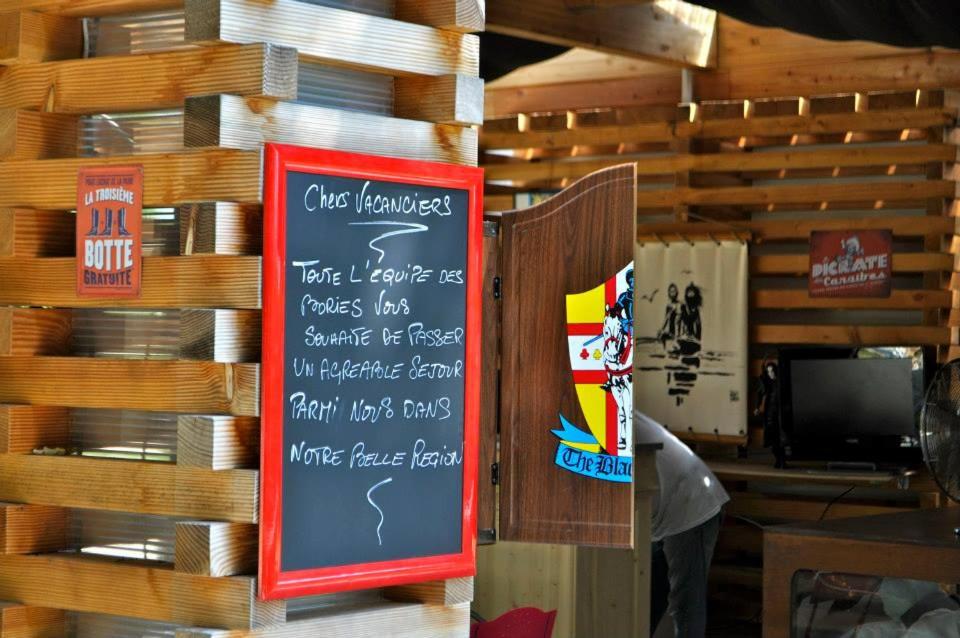 Chers VACANCIERS
TOUTE L'EQUIPE DES
PODRIES VOUS
SOUHAITE DE PASSER
UN AGREABLE SEJOUR
PARMI NOUS DANS
NOTRE BELLE REGION
POUR L'ACHAT DE LA PAIRE
LA TROISIÈME
BOTTE
GRATUITE
The Blac
PICRATE
des Caraïbes